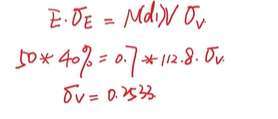 E·σE = Mdi)V σV
50*40% = 0.7*112.8·σV
σV = 0.2533